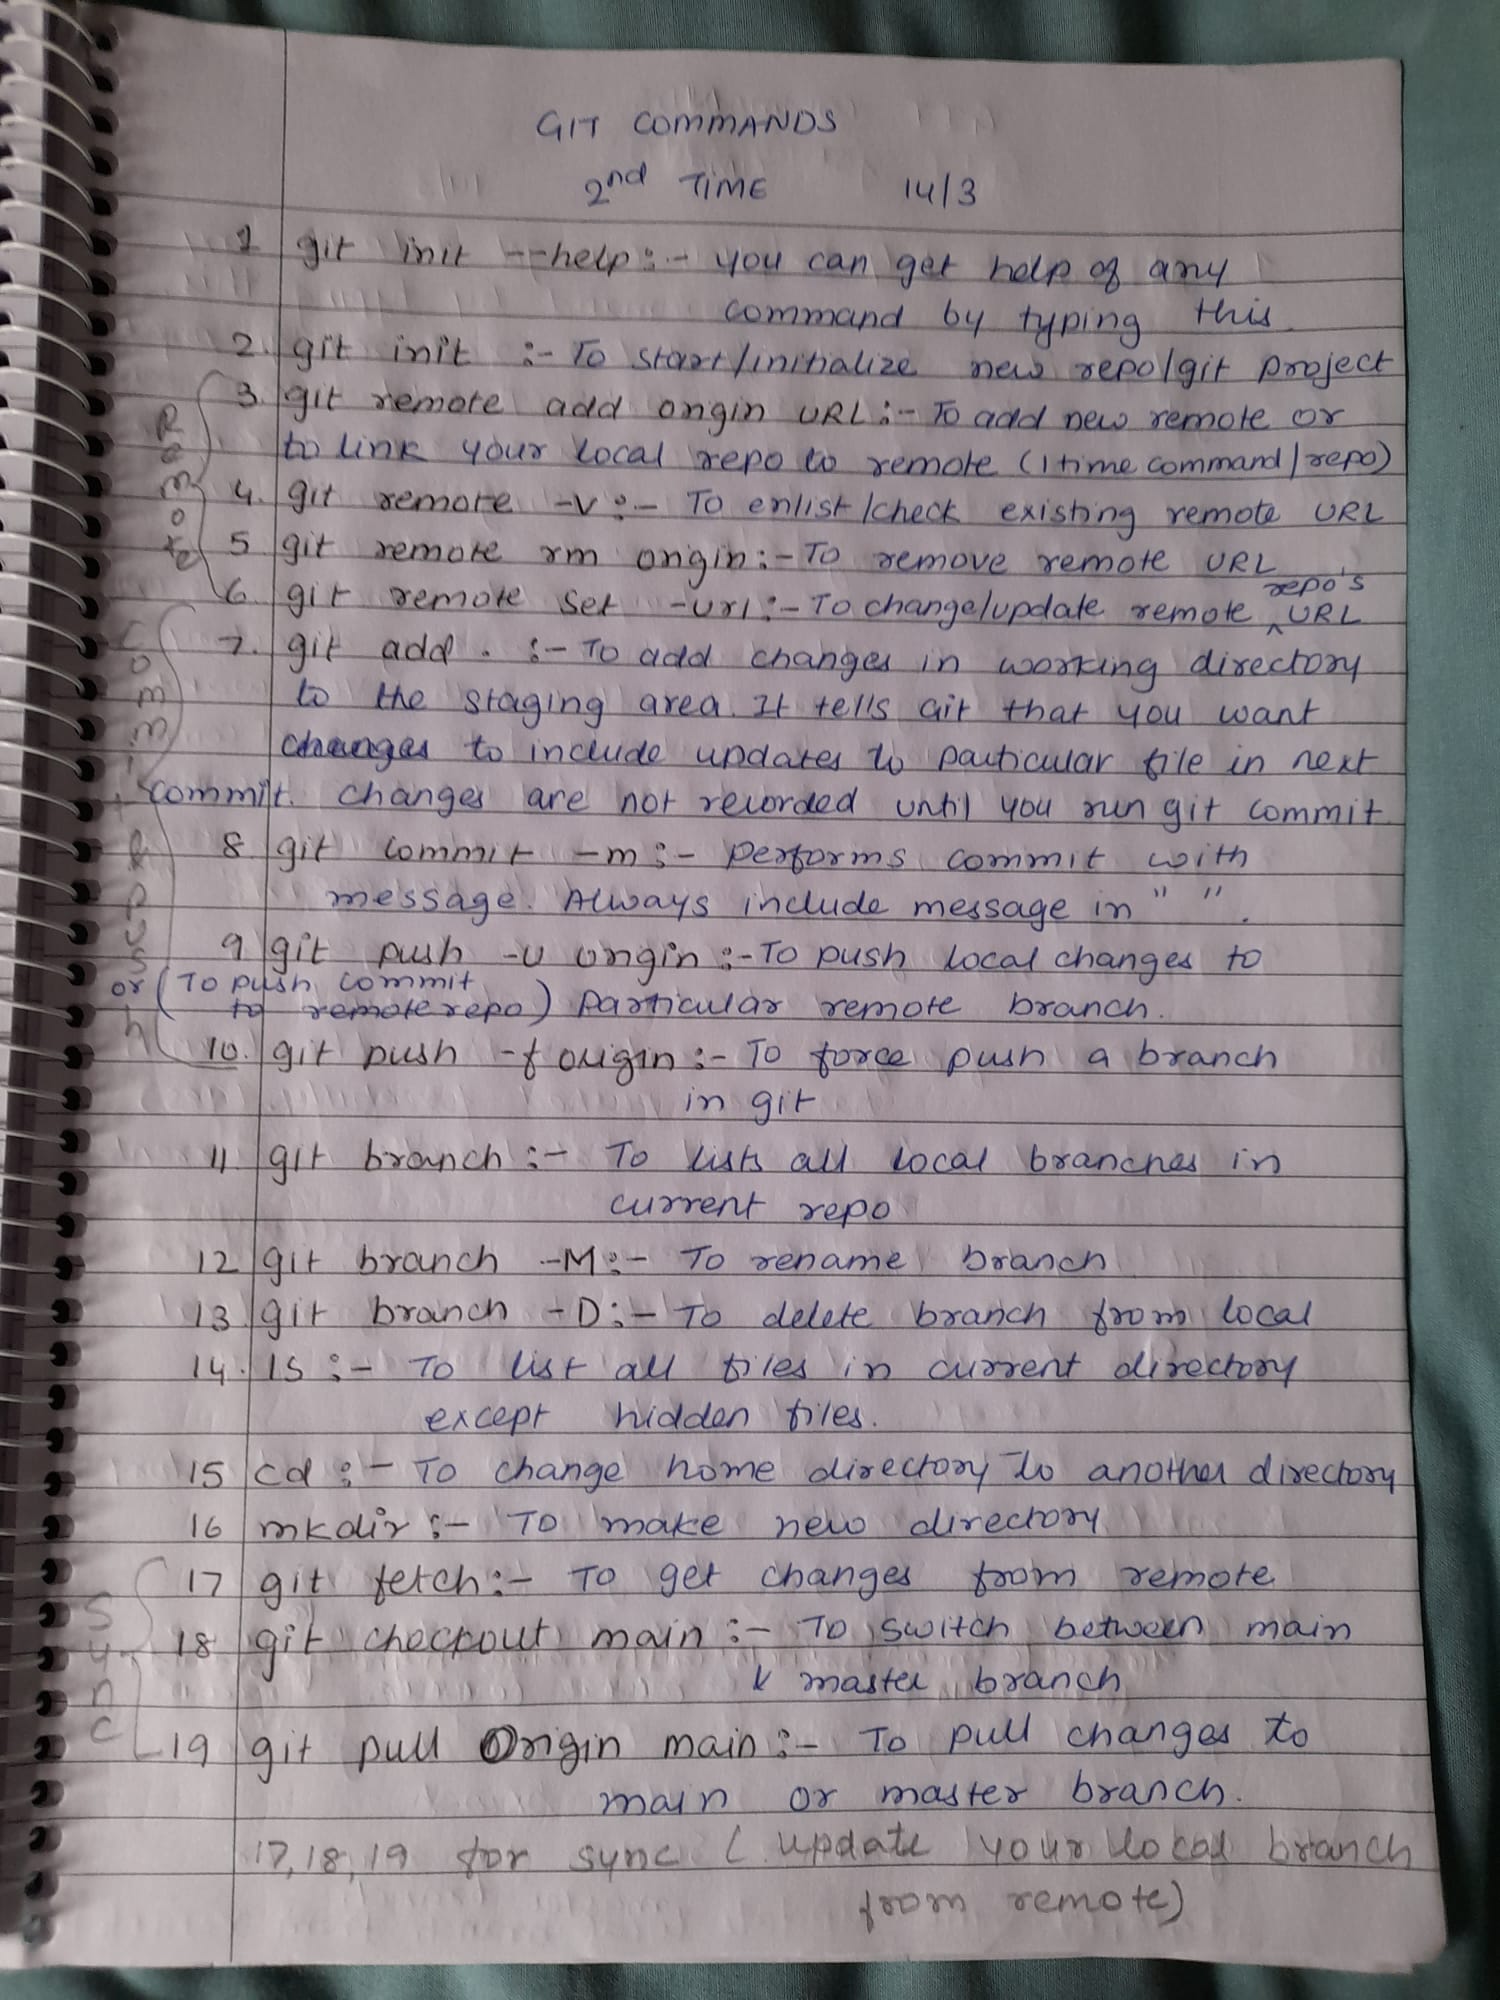 GIT COMMANDS
2nd TIME 14/3
1 git init --help :- you can get help of any
command by typing this
2. git init :- To start/initialize new repo/git project
3. git remote add origin URL :- To add new remote or
to link your local repo to remote (1 time command/repo)
4. git remote -v :- To enlist/check existing remote URL
5 git remote rm origin :- To remove remote URL
6. git remote set -url :- To change/update remote repo's URL
7. git add . :- To add changes in working directory
to the staging area. It tells Git that you want
changes to include updates to particular file in next
commit. changes are not recorded until you run git commit
8. git commit -m :- performs commit with
message. Always include message in " ".
9 git push -u origin :- To push local changes to
or (To push commit
to remote repo) particular remote branch.
10. git push -f origin :- To force push a branch
in git
11 git branch :- To lists all local branches in
current repo
12 git branch -M :- To rename branch
13. git branch -D :- To delete branch from local
14. ls :- To list all files in current directory
except hidden files.
15 cd :- To change home directory to another directory
16 mkdir :- To make new directory
17 git fetch :- To get changes from remote
18 git checkout main :- To switch between main
& master branch
19 git pull origin main :- To pull changes to
main or master branch.
17, 18, 19 for sync (update your local branch
from remote)
Remote
Commit & push
Sync